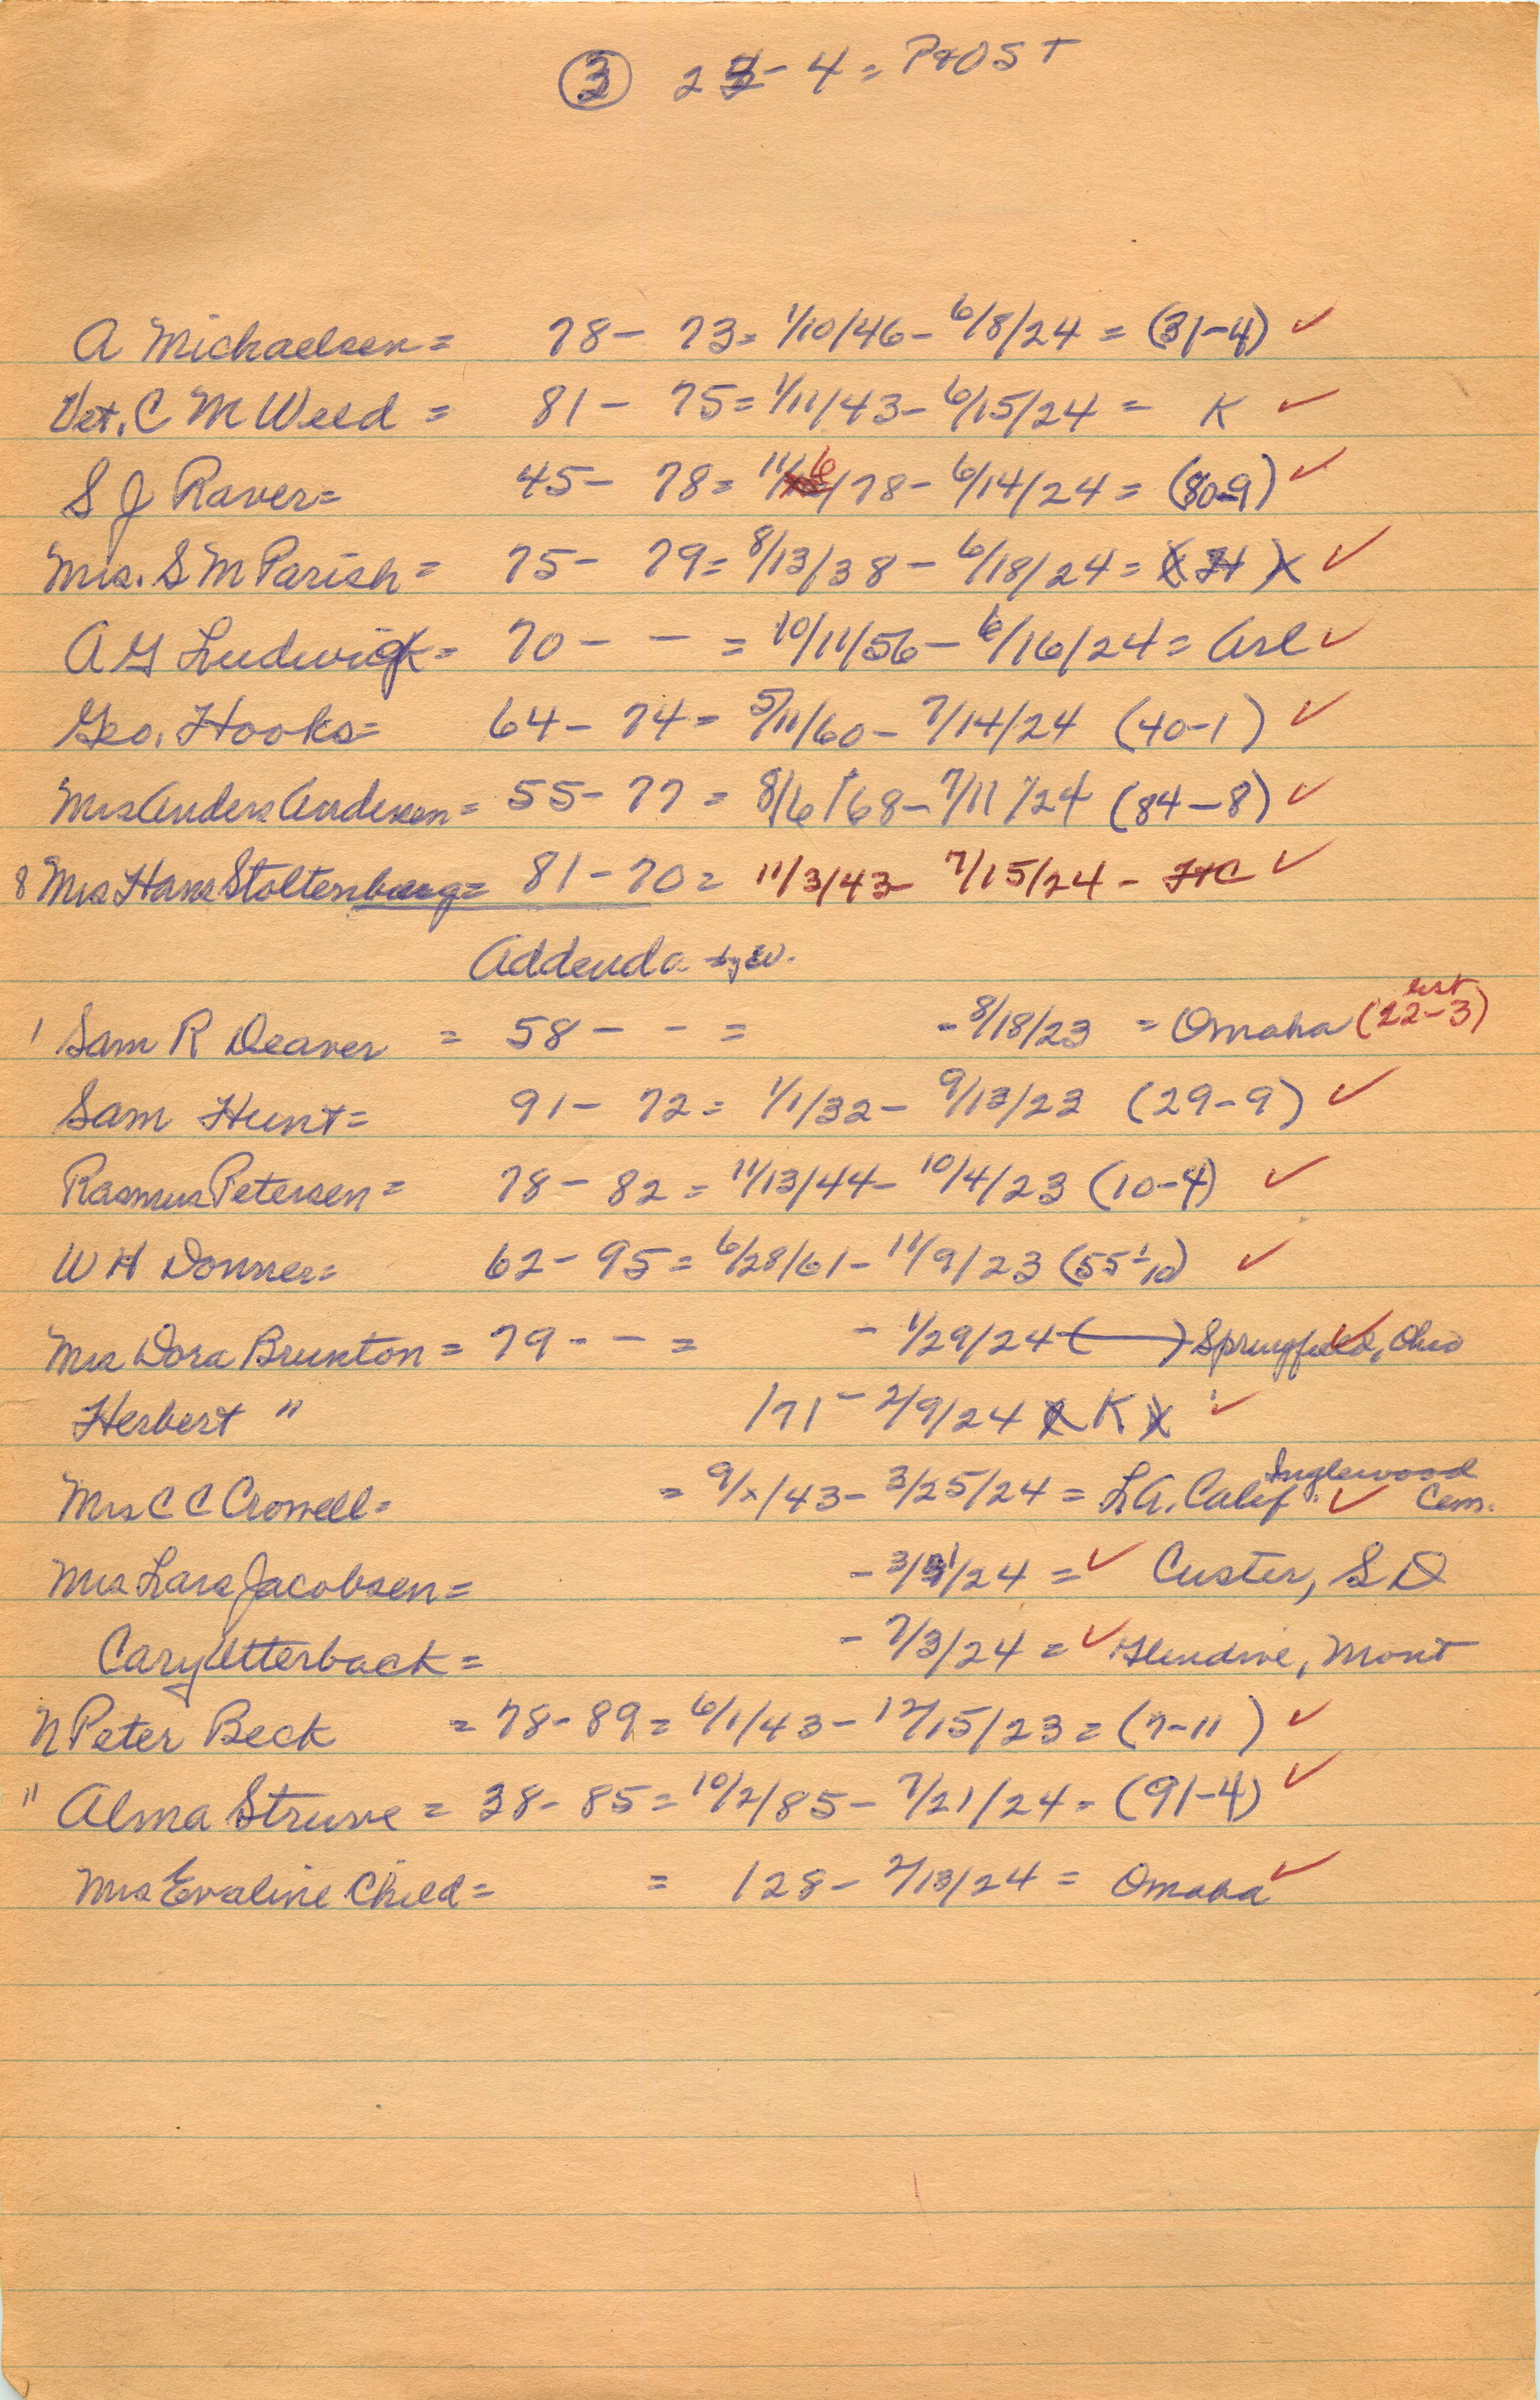 ③ 23-4 = PROST
A Michaelsen = 78 - 73 = 1/10/46 - 6/8/24 = (31-4) ✓
Vet. C M Weed = 81 - 75 = 1/11/43 - 6/15/24 = K ✓
S J Raver = 45 - 78 = 11/6/78 - 6/14/24 = (80-9) ✓
Mrs. S M Parish = 75 - 79 = 8/13/38 - 6/18/24 = H ✓
A G Ludwig = 70 - - = 10/11/56 - 6/16/24 = Arl ✓
Geo. Hooks = 64 - 74 = 5/11/60 - 7/14/24 (40-1) ✓
Mrs Anders Andersen = 55 - 77 = 8/6/68 - 7/11/24 (84-8) ✓
8 Mrs Hans Stoltenburg = 81 - 70 = 11/3/43 - 7/15/24 - HC ✓
Addenda by EW.
list
1 Sam R Deaver = 58 - - = - 8/18/23 = Omaha (22-3)
Sam Hunt = 91 - 72 = 1/1/32 - 9/13/23 (29-9) ✓
Rasmus Petersen = 78 - 82 = 11/13/44 - 10/4/23 (10-4) ✓
W H Donner = 62 - 95 = 6/28/61 - 11/9/23 (55-1/10) ✓
Mrs Dora Brunton = 79 - - = - 1/29/24 (—) Springfield, Ohio ✓
Herbert " /71 - 2/9/24 K ✓
Inglewood
Mrs C C Crowell = = 9/x/43 - 3/25/24 = L.A. Calif. ✓ Cem.
Mrs Lars Jacobsen = - 3/31/24 = ✓ Custer, S D
Cary Utterback = - 7/3/24 = ✓ Glendive, Mont
N Peter Beck = 78 - 89 = 6/1/43 - 12/15/23 = (7-11) ✓
" Alma Struve = 38 - 85 = 10/2/85 - 7/21/24 = (91-4) ✓
Mrs Evaline Child = = 128 - 2/13/24 = Omaha ✓